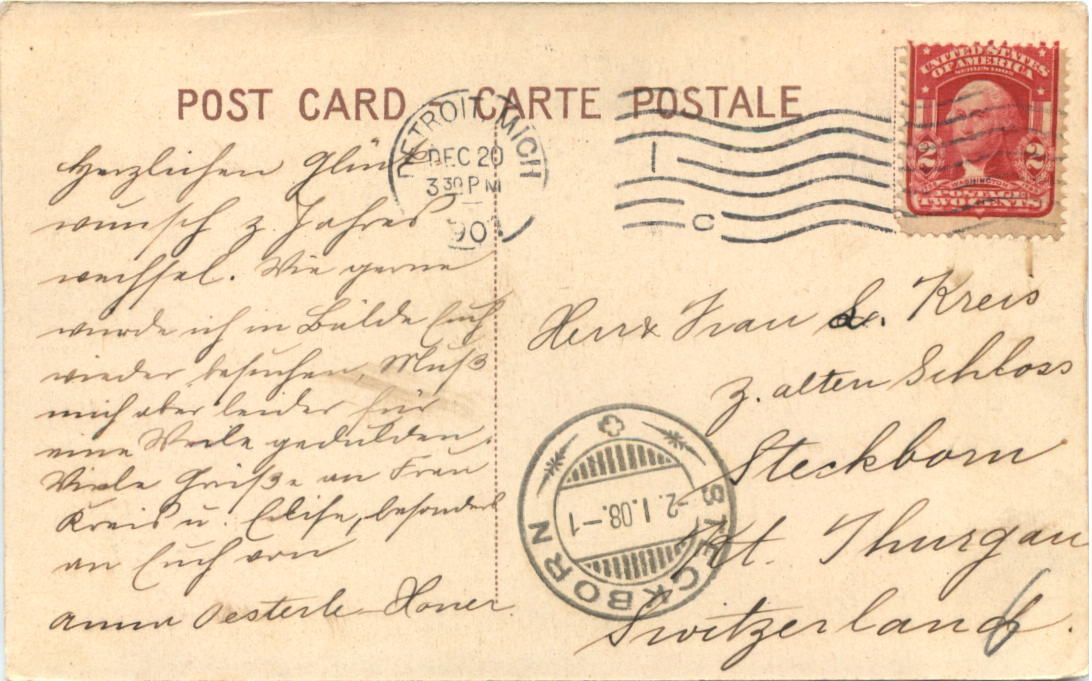 POST CARD - CARTE POSTALE
DETROIT, MICH
DEC 20
3 30 P M
190
C
UNITED STATES
OF AMERICA
SERIES 1902
2 2
WASHINGTON
POSTAGE
TWO CENTS
Herzlichen Glück
wunsch z. Jahres
wechsel. Wie gerne
würde ich in Bälde Euch
wieder besuchen, Muß
mich aber leider für
eine Weile gedulden.
Viele Grüße an Frau
Kreis u. Elise, besonders
an Euch von
Anna Oesterle-Honer
Herr & Frau L. Kreis
z. alten Schloss
Steckborn
Kt. Thurgau
Switzerland.
6
STECKBORN
-2.I.08.-1